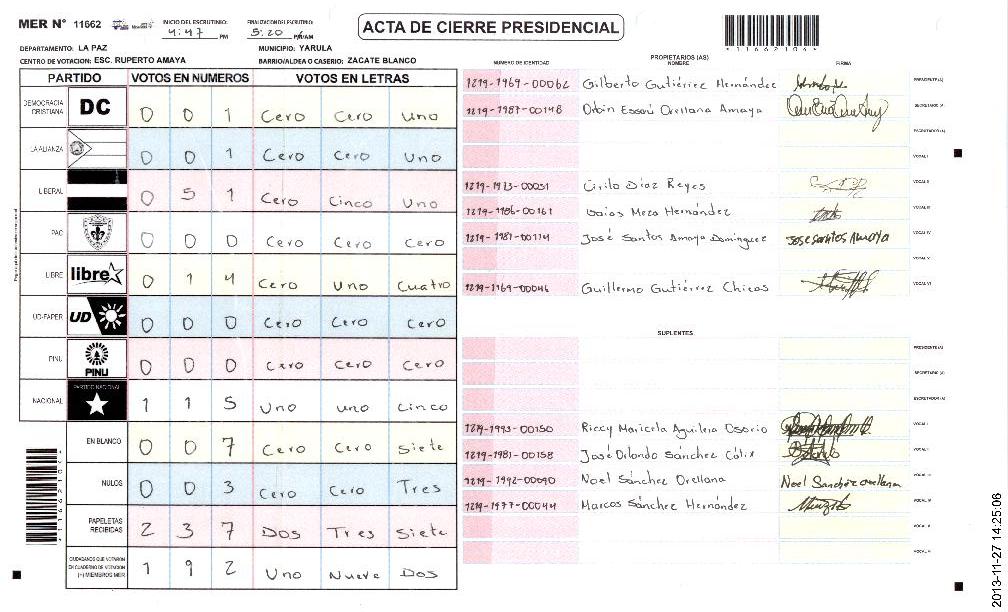 MER N° 11662
INICIO DEL ESCRUTINIO: 4:47 PM
FINALIZACION DEL ESCRUTINIO: 5:20
ACTA DE CIERRE PRESIDENCIAL
11662106
DEPARTAMENTO: LA PAZ
MUNICIPIO: YARULA
CENTRO DE VOTACION: ESC. RUPERTO AMAYA
BARRIO/ALDEA O CASERIO: ZACATE BLANCO
PARTIDO VOTOS EN NUMEROS VOTOS EN LETRAS
DEMOCRACIA CRISTIANA DC 0 0 1 Cero Cero Uno
LA ALIANZA 0 0 1 Cero Cero Uno
LIBERAL 0 5 1 Cero Cinco Uno
PAC 0 0 0 Cero Cero Cero
LIBRE libre 0 1 4 Cero Uno Cuatro
UD-FAPER UD 0 0 0 Cero Cero Cero
PINU PINU 0 0 0 Cero Cero Cero
NACIONAL PARTIDO NACIONAL 1 1 5 Uno uno Cinco
EN BLANCO 0 0 7 Cero Cero Siete
NULOS 0 0 3 Cero Cero Tres
PAPELETAS RECIBIDAS 2 3 7 Dos Tres Siete
CIUDADANOS QUE VOTARON EN CUADERNO DE VOTACION (+) MIEMBROS MER 1 9 2 Uno Nueve Dos
NUMERO DE IDENTIDAD PROPIETARIOS (AS) NOMBRE FIRMA
1219-1969-00062 Gilberto Gutiérrez Hernández PRESIDENTE (A)
1219-1987-00148 Orellana Amaya SECRETARIO (A)
ESCRUTADOR (A)
VOCAL I
Cirilo Díaz Reyes VOCAL II
1219-1986-00161 Isaias Meza Hernández VOCAL III
José Santos Amaya Domínguez Jose Santos Amaya VOCAL IV
VOCAL V
Guillermo Gutiérrez Chicas VOCAL VI
SUPLENTES
PRESIDENTE (A)
SECRETARIO (A)
ESCRUTADOR (A)
1219-1993-00150 Riccy Maricela Aguilera Osorio VOCAL I
1219-1981-00158 José Orlando Sánchez Cálix VOCAL II
1219-1992-00090 Noel Sánchez Orellana Noel Sanchez orellana VOCAL III
1219-1977-00044 Marcos Sánchez Hernández VOCAL IV
VOCAL V
VOCAL VI
11662106
2013-11-27 14:25:06